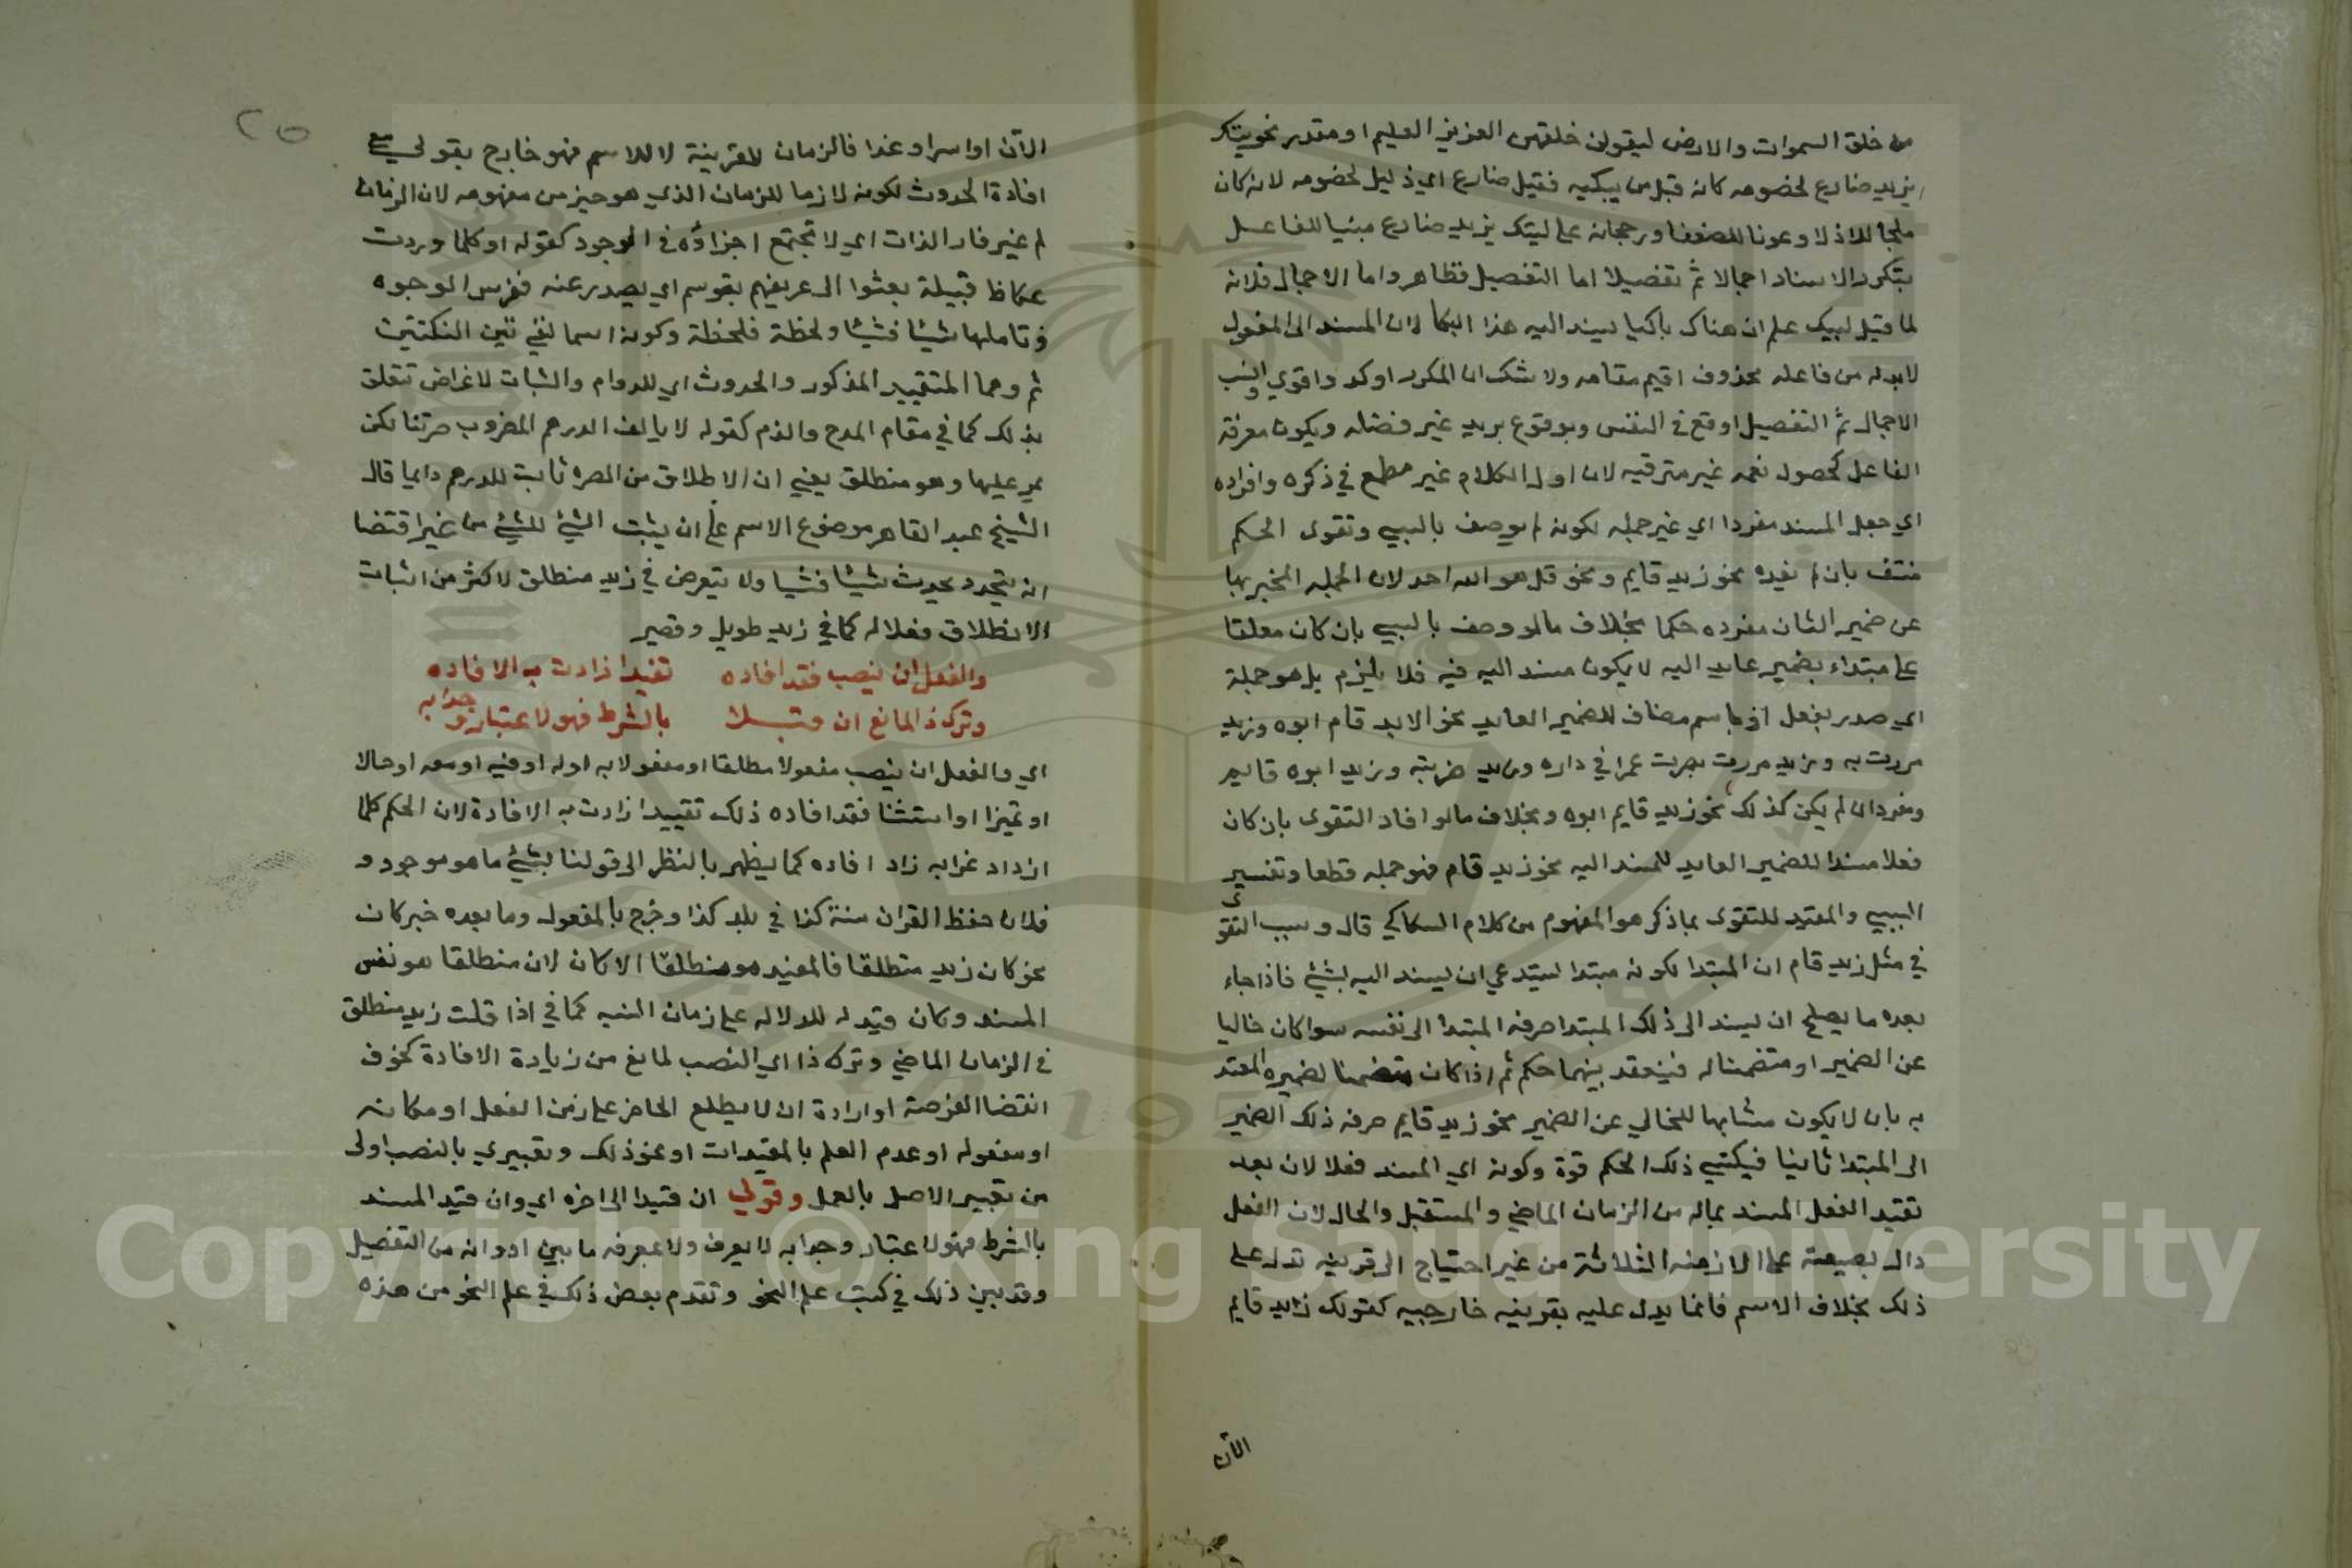 من خلق السموات والارض ليقولن خلقهن العزيز العليم او مقدر نحو ليبتك
يزيد ضارع لخصومه كانه قيل من يبكيه فقيل ضارع اي ذليل لخصومه لانه كان
ملجا للاذلا وعونا للضعفا ورجحانه على ليبتك يزيد ضارع مبنيا للفاعل
بتكرر الاسناد اجمالا ثم تفصيلا اما التفصيل فظاهر واما الاجمال فلانه
لما قيل ليبك علم ان هناك باكيا يسند اليه هذا البكا لان المسند الى المفعول
لابد له من فاعله محذوف اقيم مقامه ولا شك ان المكرر اوكد واقوي
الاجمال ثم التفصيل اوقع في النفس وبوقوع يزيد غير فضله ويكون معرفة
الفاعل كحصول نعمه غير مترقبه لان اول الكلام غير مطمع في ذكره وافراده
اي جعل المسند مفردا اي غير جمله لكونه لم يوصف بالسببي وتقوى الحكم
منتف بان لم يفده نحو زيد قايم ونحو قل هو الله احد لان الجمله المخبر بها
عن ضمير الشان مفرده حكما بخلاف ما لو وصف بالسببي بان كان معلقا
على مبتداء بضمير عايد اليه لا يكون مسند اليه فيه فلا يلزم بل هو جملة
اي صدر بفعل او باسم مضاف للضمير العايد نحو الابد قام ابوه وزيد
مررت به وزيد مررت بضرب عمرا في داره وزيد ضربته وزيد ابوه قايم
ومفردا ان لم يكن كذلك نحو زيد قايم ابوه وبخلاف ما لو افاد التقوى بان كان
فعلا مسندا للضمير العايد للمسند اليه نحو زيد قام فهو جمله قطعا وتفسير
السببي والمقيد للتقوى بما ذكر هو المفهوم من كلام السكاكي قال وسبب التقوى
في مثل زيد قام ان المبتدا لكونه مبتدا يستدعي ان يسند اليه بشيئ فاذا جاء
بعده ما يصلح ان يسند الى ذلك المبتدا صرفه المبتدا الى نفسه سوا كان خاليا
عن الضمير او متضمنا له فينعقد بينهما حكم ثم اذا كان متضمنا لضميره المعتد
به بان لا يكون مشابها للخالي عن الضمير نحو زيد قايم صرفه ذلك الضمير
الى المبتدا ثانيا فيكتسي ذلك الحكم قوة وكونه اي المسند فعلا لان بعد
تقيد الفعل المسند بماله من الزمان الماضي والمستقبل والحال لان الفعل
دال بصيغته على الازمنه الثلاثة من غير احتياج الى قرينه تدل على
ذلك بخلاف الاسم فانما يدل عليه بقرينه خارجيه كقولك زيد قايم
الآن
٢٥
الآن او امس او غدا فالزمان للقرينة لا للاسم فهو خارج بقولي مع
افادة الحدوث لكونه لازما للزمان الذي هو جزء من مفهومه لان الزمان
لم غير قار الذات اي لا تجتمع اجزاؤه في الوجود كقوله او كلما وردت
عكاظ قبيلة بعثوا الى عريفهم يتوسم اي يصدر عنه تفرس الوجوه
وتاملها شيئا فشيئا ولحظة فلحظة وكونه اسما لنفي تين النكتتين
ثم وهما التقييد المذكور والحدوث اي للدوام والثبات لاغراض تتعلق
بذلك كما في مقام المدح والذم كقوله لا يالف الدرهم المضروب صرتنا لكن
يمر عليها وهو منطلق يعني ان الاطلاق من الصره ثابت للدرهم دايما قال
الشيخ عبد القاهر موضوع الاسم على ان يثبت الشيئ للشيئ من غير اقتضا
انه يتجدد يحدث شيئا فشيا ولا يتعرض في زيد منطلق لاكثر من اثبات
الانطلاق فعلا له كما في زيد طويل وقصير
والفعل ان ينصب فقد افاده تقيدا زادت به الافاده
وترك ذا لمانع ان قبلا بالشرط فهو لاعتبار وجوابه
اي والفعل ان ينصب مفعولا مطلقا او مفعولا به او له او فيه او معه او حالا
او تميزا او استثنا فقد افاده ذلك تقييدا زادت به الافادة لان الحكم كلما
ازداد غرابه زاد افاده كما يظهر بالنظر الى قولنا شيئ ما هو موجود و
فلان حفظ القران سنة كذا في بلد كذا وخرج بالمفعول وما بعده خبر كان
نحو كان زيد منطلقا فالمقيد هو منطلقا لا كان لان منطلقا هو نفس
المسند وكان قيد له للدلاله على زمان النسبه كما في اذا قلت زيد منطلق
في الزمان الماضي وترك ذا اي النصب لمانع من زيادة الافادة كخوف
انقضا الفرصة او ارادة ان لا يطلع الحاضر على زمن الفعل او مكانه
او مفعوله او عدم العلم بالمقيدات او نحو ذلك وتعبيري بالنصب اولى
من تعبير الاصل بالعمل وقولي ان قيدا الى اخره اي وان قيد المسند
بالشرط فهو لاعتبار وجوابه لا يعرف ولا بمعرفه ما بين ادواته من التفصيل
وقد بين ذلك في كتب علم النحو وتقدم بعض ذلك في علم النحو من هذه
Copyright © King Saud University